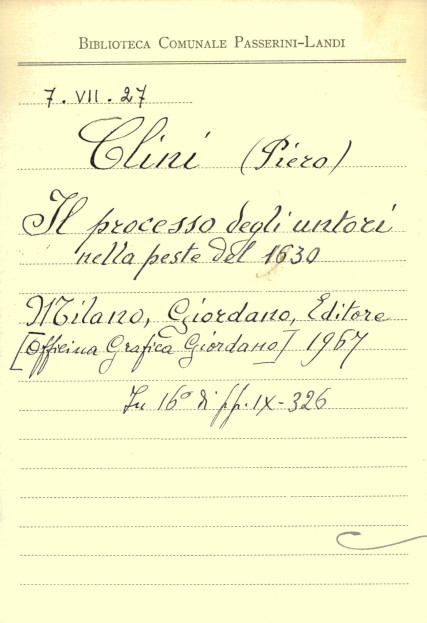 BIBLIOTECA COMUNALE PASSERINI-LANDI
7. VII. 27
Clini (Piero)
Il processo degli untori
nella peste del 1630
Milano, Giordano, Editore
[Officina Grafica Giordano] 1967
In 16° di pp. IX-326